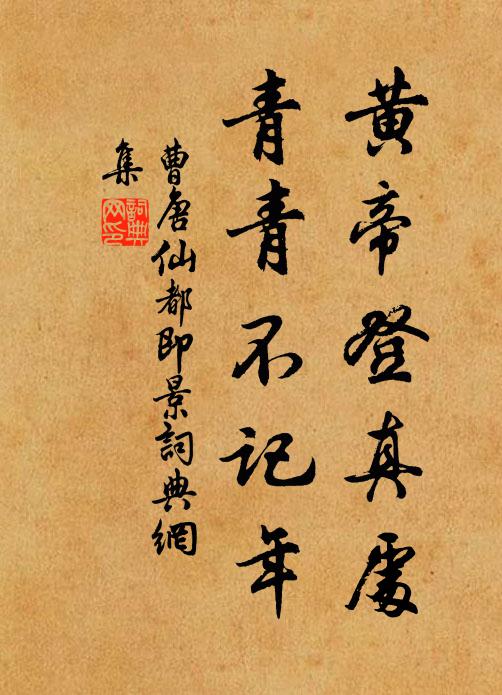 黄帝登真處
青青不记年
曹唐仙都即景詞典網
集
詞典
网印